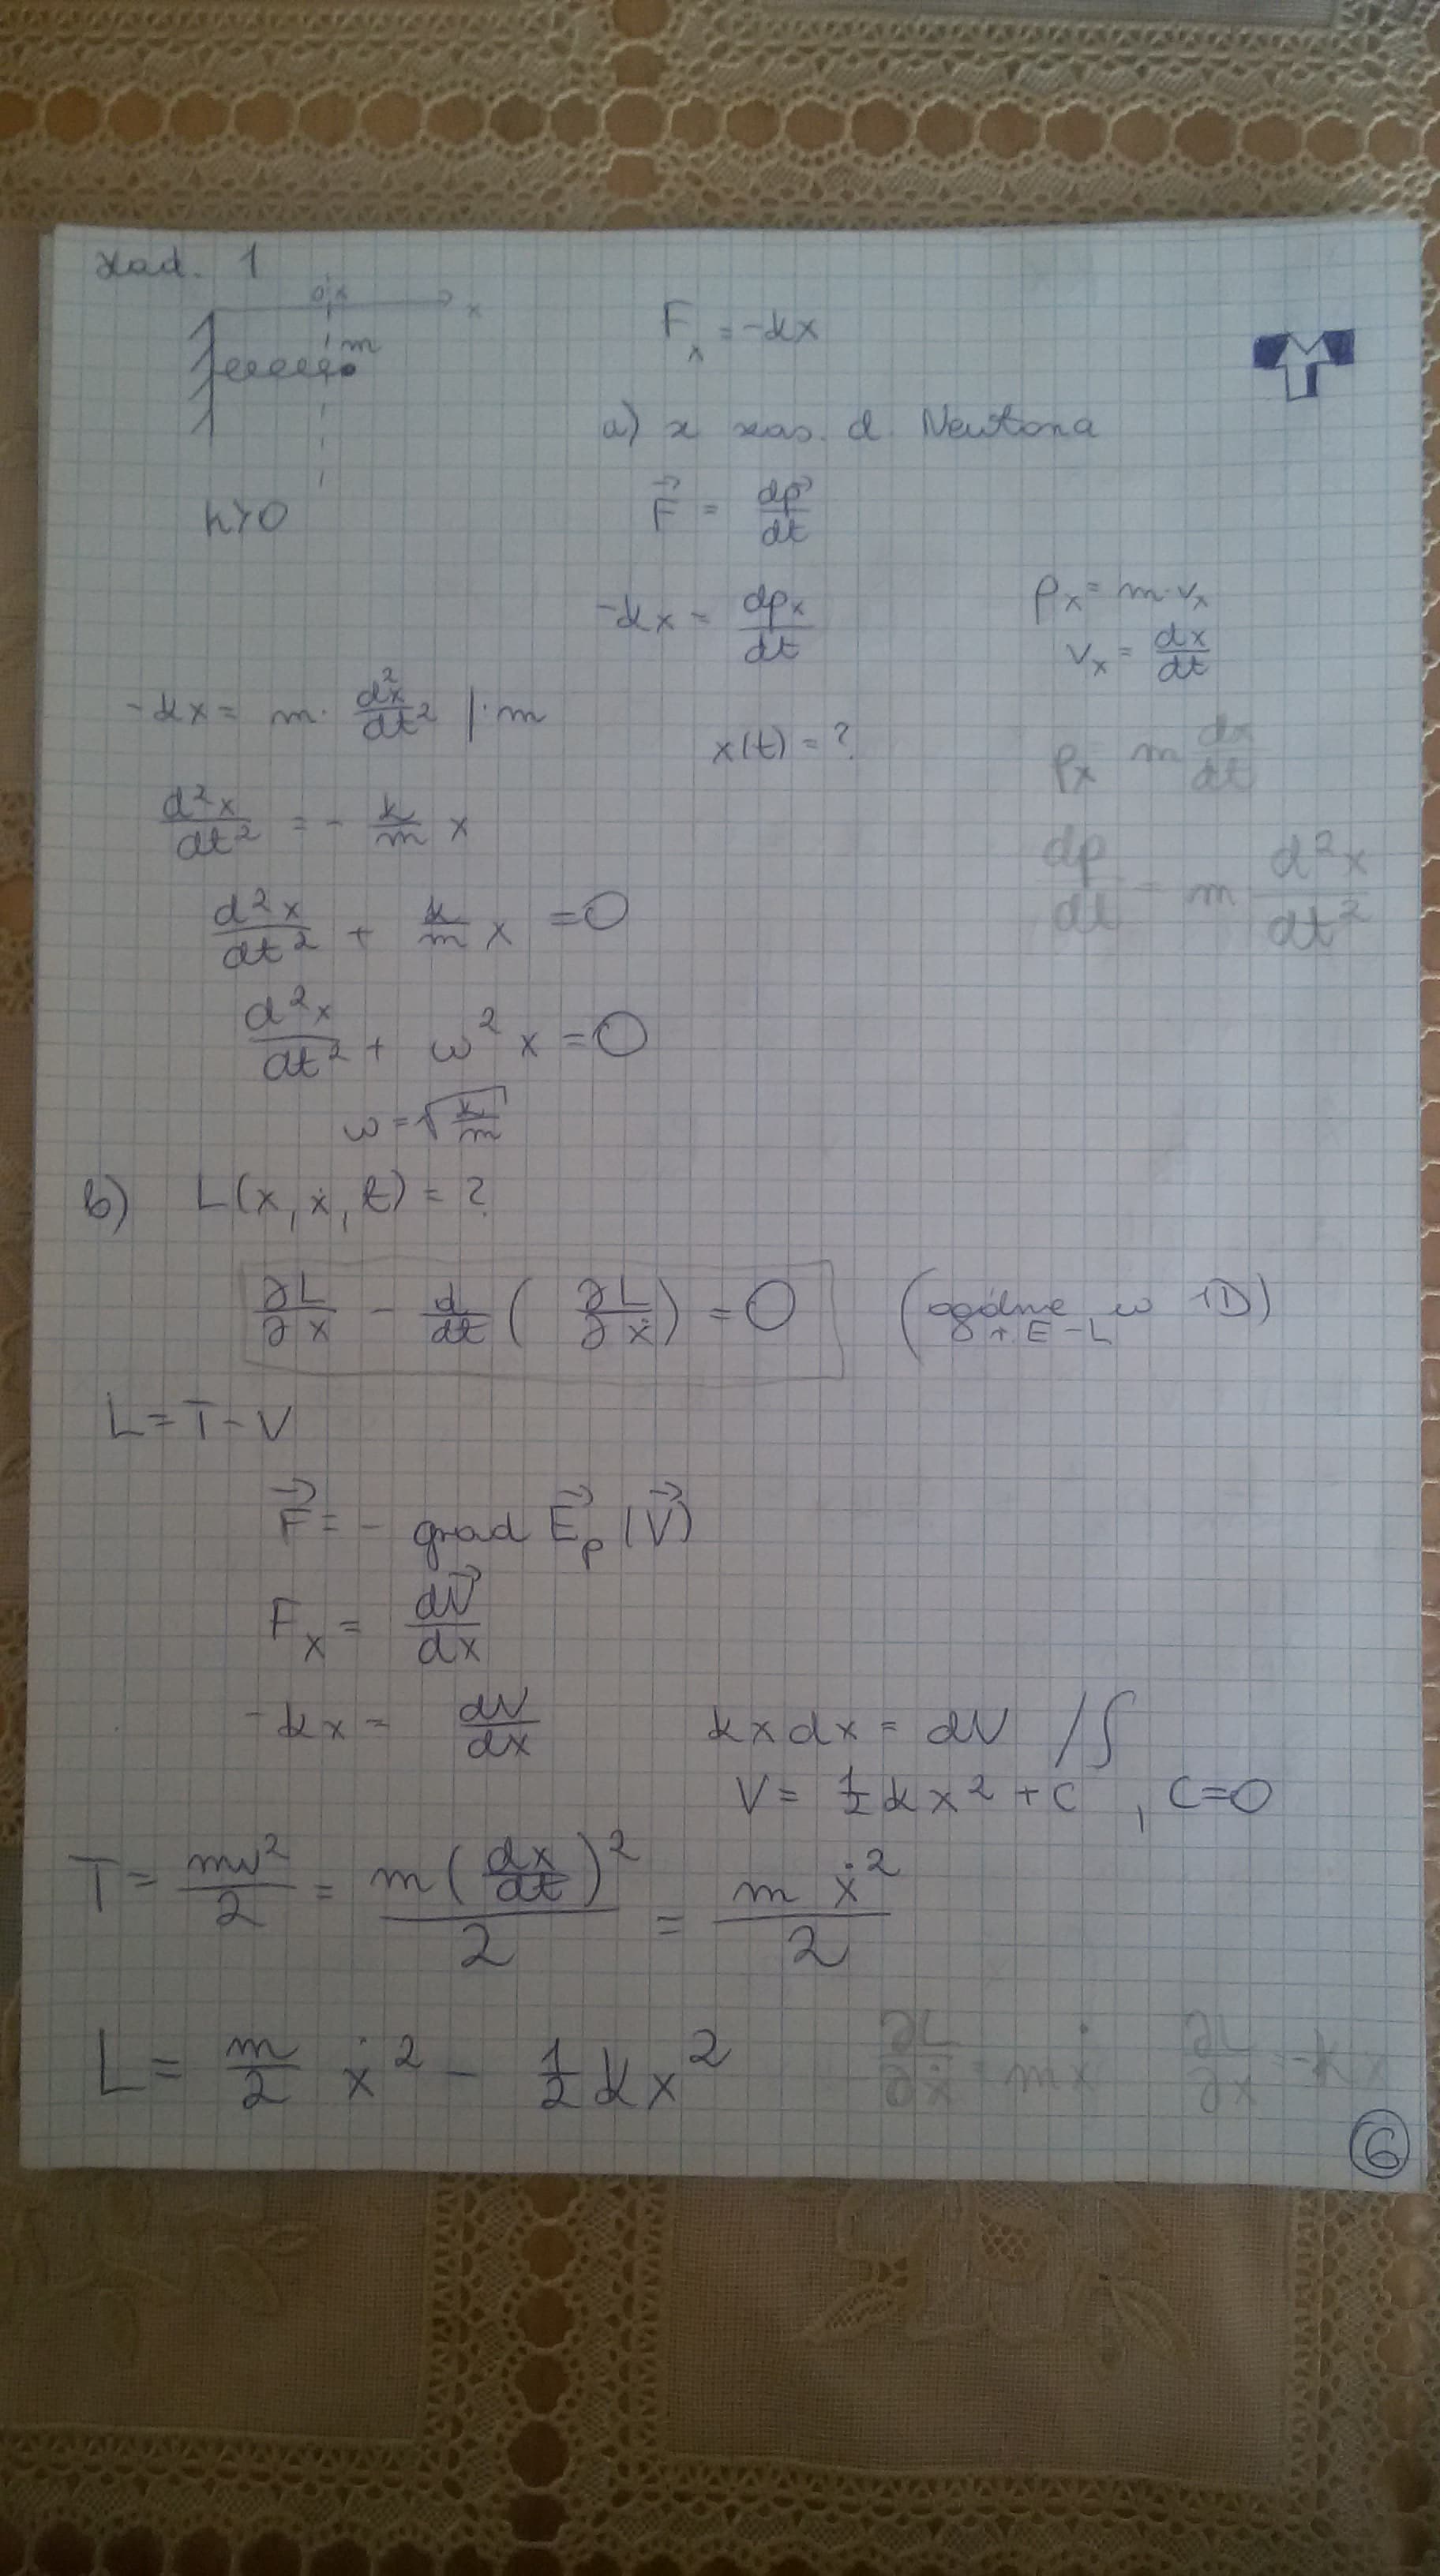 zad. 1
0 x
x
m
k>0
F_x = -kx
a) z zas. d. Newtona
\vec{F} = \frac{d\vec{p}}{dt}
-kx = \frac{dp_x}{dt}
p_x = m·v_x
v_x = \frac{dx}{dt}
-kx = m · \frac{d^2x}{dt^2} |·m
x(t) = ?
p_x = m \frac{dx}{dt}
\frac{d^2x}{dt^2} = - \frac{k}{m} x
\frac{dp}{dt} = m \frac{d^2x}{dt^2}
\frac{d^2x}{dt^2} + \frac{k}{m} x = 0
\frac{d^2x}{dt^2} + ω^2 x = 0
ω = \sqrt{\frac{k}{m}}
b) L(x, ẋ, t) = ?
\frac{∂L}{∂x} - \frac{d}{dt} ( \frac{∂L}{∂ẋ} ) = 0 (ogólne w 1D)
r. E-L
L = T - V
\vec{F} = - grad \vec{E_p} (\vec{V})
F_x = \frac{d\vec{V}}{dx}
-kx = \frac{dV}{dx} kxdx = dV /∫
V = \frac{1}{2} kx^2 + C , C=0
T = \frac{mv^2}{2} = \frac{m(\frac{dx}{dt})^2}{2} = \frac{m ẋ^2}{2}
L = \frac{m}{2} ẋ^2 - \frac{1}{2} kx^2 \frac{∂L}{∂ẋ} = mẋ \frac{∂L}{∂x} = -kx
6